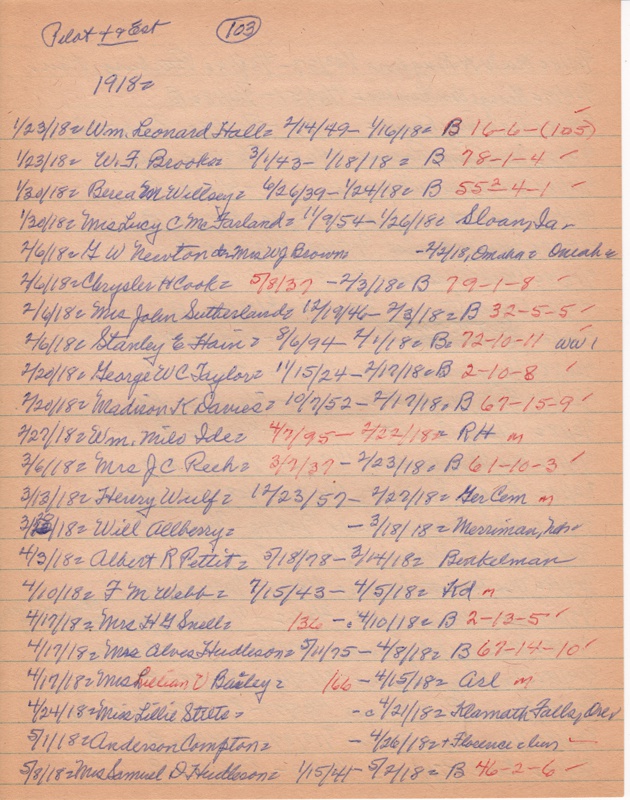 Pilot + Est (103)
1918=
1/23/18= Wm. Leonard Hall= 2/14/49 - 1/16/18= B 16-6-(105)
1/23/18= W. F. Brook= 3/1/43 - 1/18/18= B 78-1-4 ✓
1/30/18= Berea M Willsey= 6/26/39 - 1/24/18= B 55²-4-1 ✓
1/30/18= Mrs Lucy C McFarland= 11/9/54 - 1/26/18= Sloan, Ia.
2/6/18= G W Newton Mrs W J Brown - 2/2/18, Omaha= Omaha=
2/6/18= Chrysler H Cook= 5/8/37 - 2/3/18= B 79-1-8 ✓
2/6/18= Mrs John Sutherland= 12/19/46 - 2/3/18= B 32-5-5 ✓
2/6/18= Stanley E Hain= 8/6/94 - 2/1/18= B= 72-10-11 WW1
2/20/18= George W C Taylor= 11/15/24 - 2/17/18= B 2-10-8 ✓
2/20/18= Madison K Davies= 10/7/52 - 2/17/18= B 67-15-9 ✓
2/27/18= Wm. Milo Ide= 4/7/95 - 2/22/18= RH m
3/6/18= Mrs J C Reeh= 3/7/37 - 2/23/18= B 61-10-3 ✓
3/13/18= Henry Wulf= 12/23/57 - 2/27/18= Ger Cem m
3/ /18= Will Allberry= - 3/18/18= Merriman, Neb=
4/3/18= Albert R Pettit= 5/18/78 - 3/14/18= Benkelman
4/10/18= F M Webb= 7/15/43 - 4/5/18= Kd m
4/17/18= Mrs H G Snell= 136 - c 4/10/18= B 2-13-5 ✓
4/17/18= Mrs Alves Hudleson= 5/11/75 - 4/8/18= B 67-14-10 ✓
4/17/18= Mrs Lillian V Bailey= 166 - 4/15/18= Asl m
4/24/18= Miss Lillie Stilts= - c 4/21/18= Klamath Falls, Ore=
5/1/18= Anderson Compton= - 4/26/18= + Florence
5/8/18= Mrs Samuel D Hudleson= 1/15/41 - 5/2/18= B 46-2-6 ✓